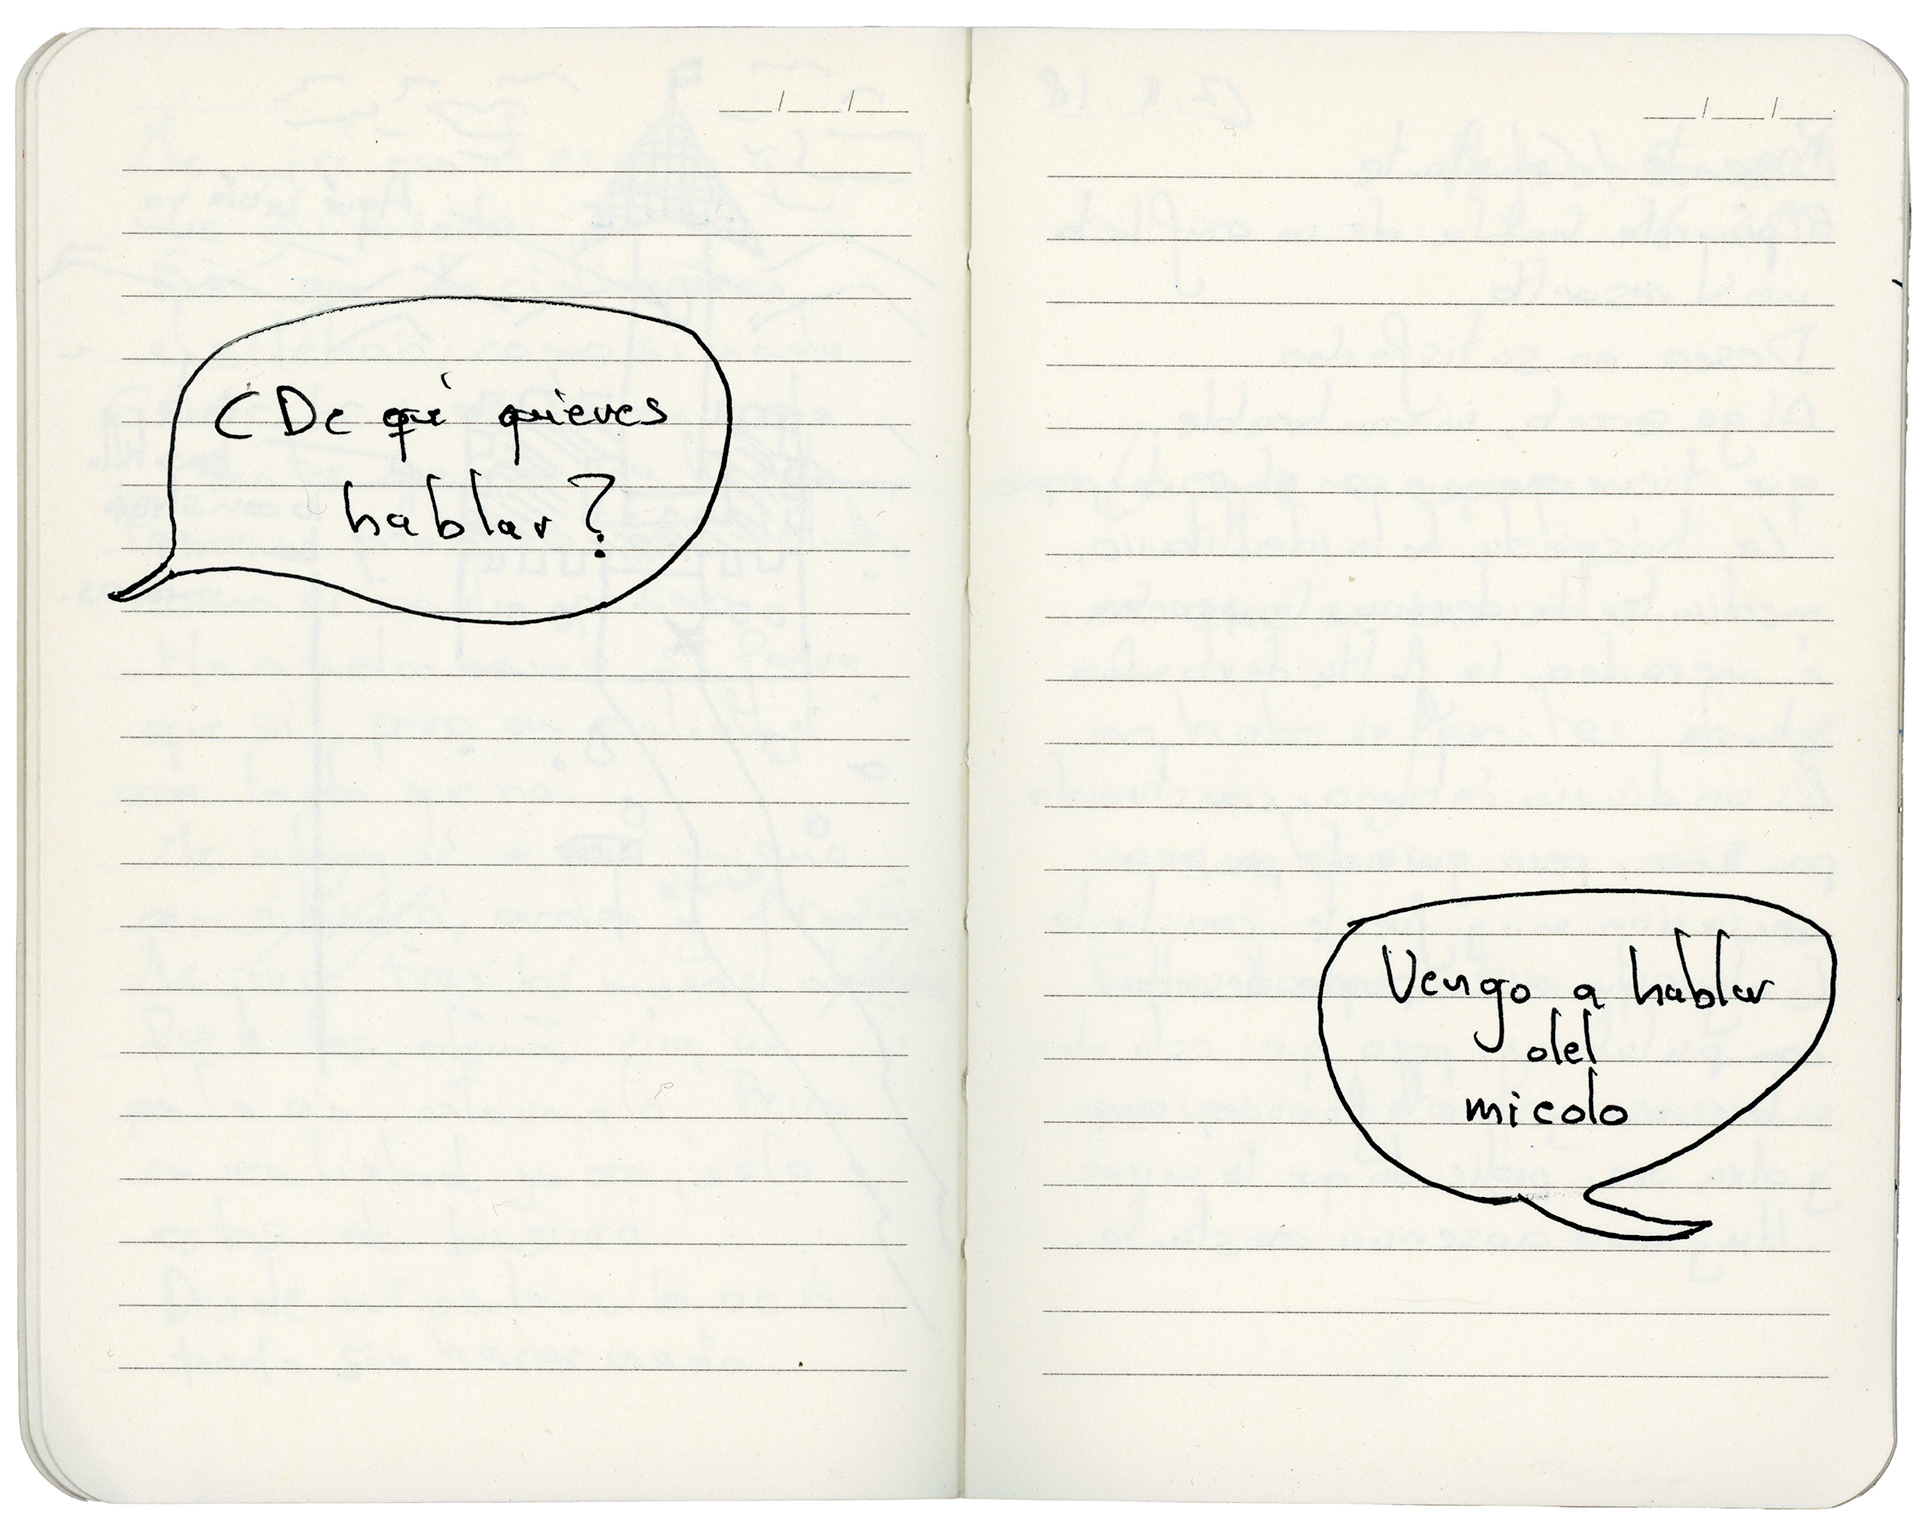 ¿De qué quieres
hablar?
Vengo a hablar
del
miedo